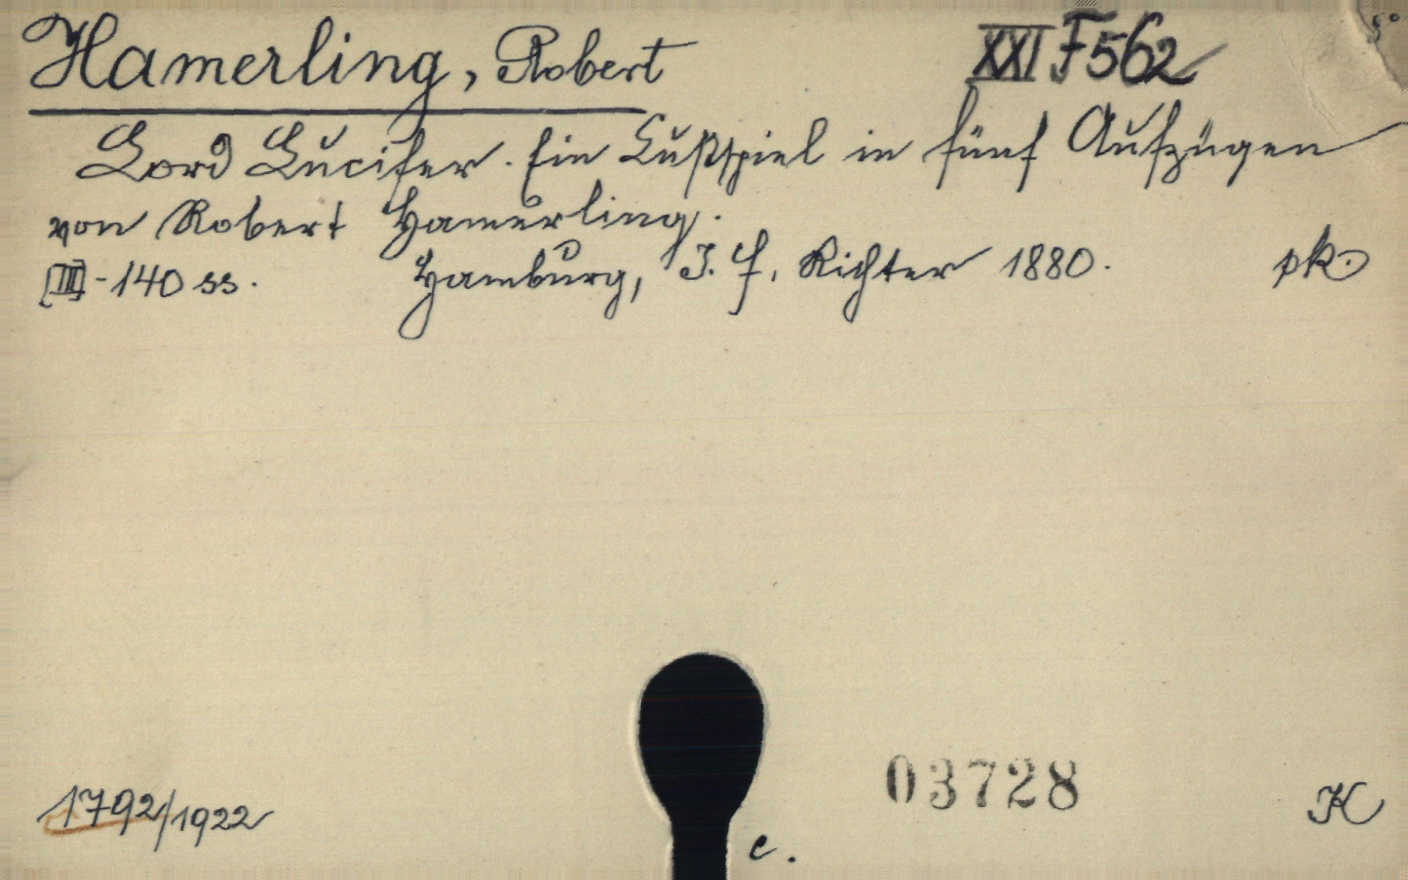 Hamerling, Robert XXI F 562 5°
Lord Lucifer. Ein Lustspiel in fünf Aufzügen
von Robert Hamerling.
[III]-140 ss. Hamburg, J. F. Richter 1880. pk.
03728
1792/1922 K
c.